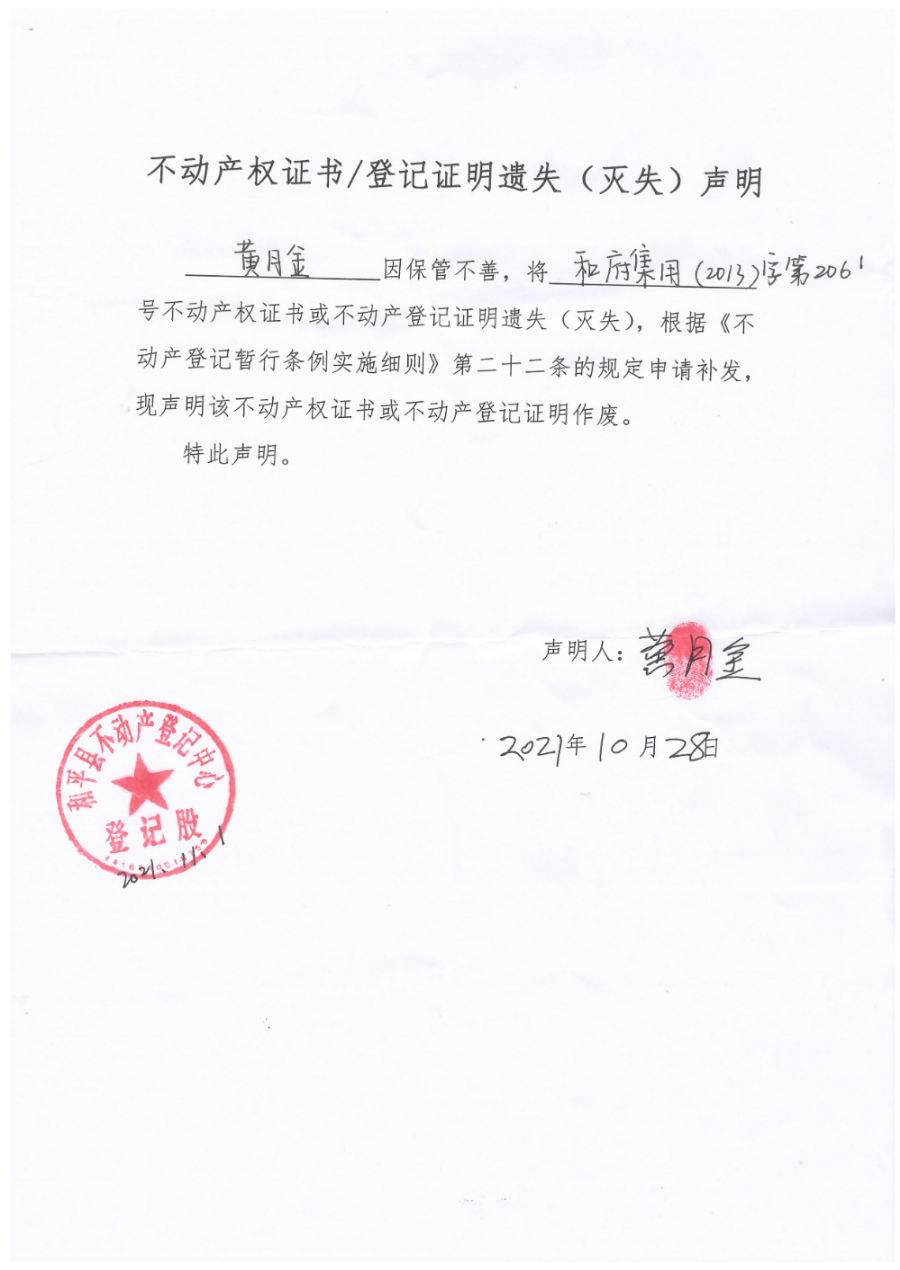 不动产权证书/登记证明遗失（灭失）声明
黄月金因保管不善，将和府集用(2013)字第2061
号不动产权证书或不动产登记证明遗失（灭失），根据《不
动产登记暂行条例实施细则》第二十二条的规定申请补发，
现声明该不动产权证书或不动产登记证明作废。
特此声明。
声明人：黄月金
2021年10月28日
和平县不动产登记中心
登记股
2021.11.1